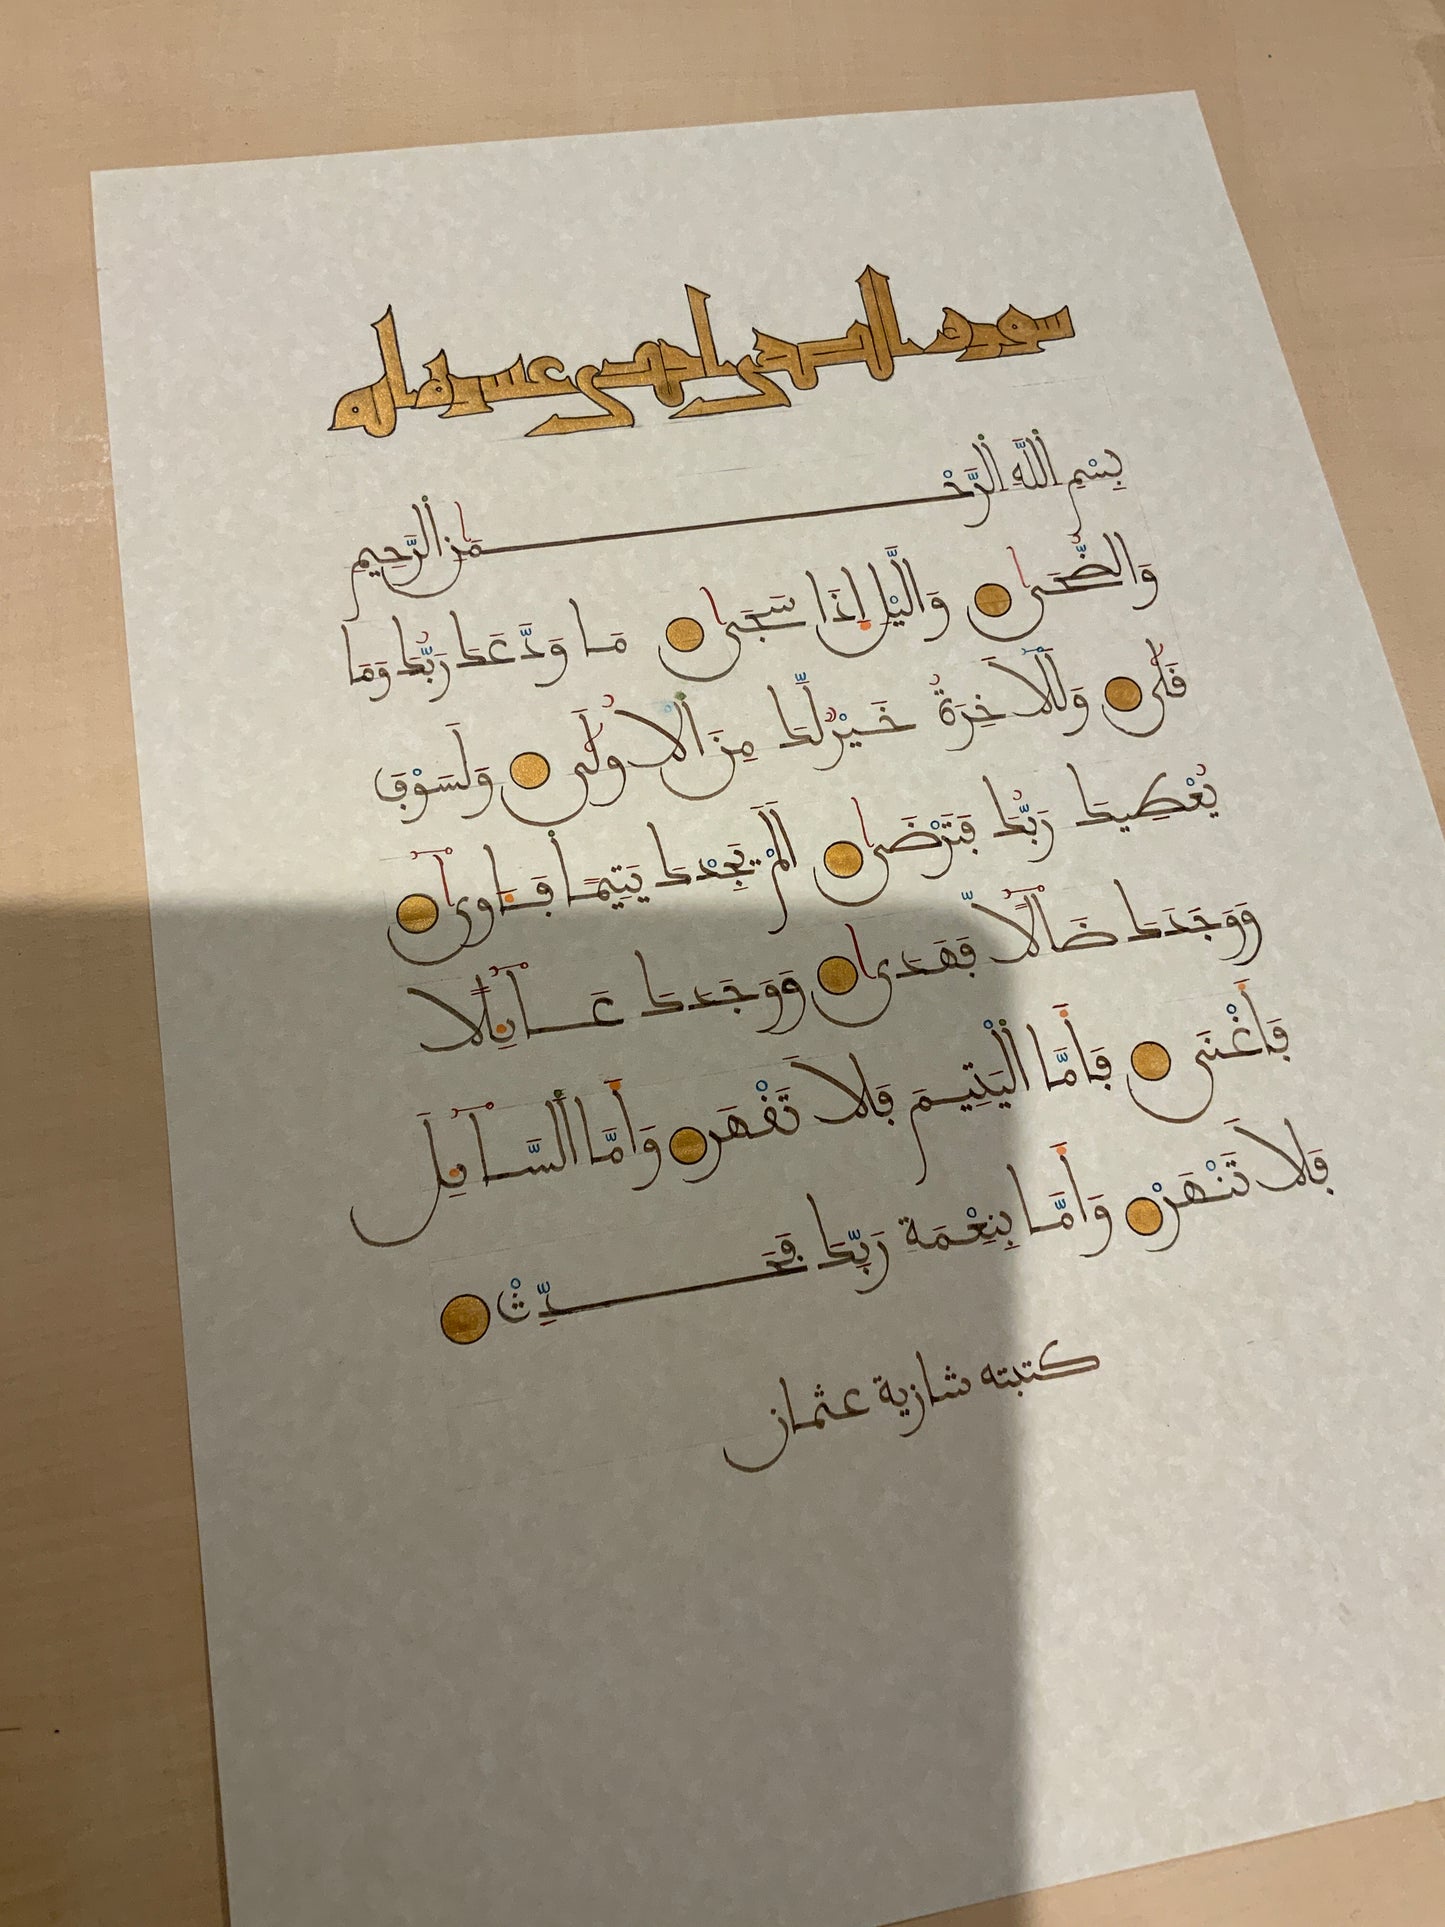 سورة الضحى احدى عشرة اية
بِسْمِ اللَّهِ الرَّحْمَٰنِ الرَّحِيمِ
وَالضُّحَىٰ وَالَّيْلِ إِذَا سَجَىٰ مَا وَدَّعَكَ رَبُّكَ وَمَا
قَلَىٰ وَلَلْآخِرَةُ خَيْرٌ لَّكَ مِنَ الْأُولَىٰ وَلَسَوْفَ
يُعْطِيكَ رَبُّكَ فَتَرْضَىٰ أَلَمْ يَجِدْكَ يَتِيمًا فَـَٔاوَىٰ
وَوَجَدَكَ ضَآلًّا فَهَدَىٰ وَوَجَدَكَ عَآئِلًا
فَأَغْنَىٰ فَأَمَّا الْيَتِيمَ فَلَا تَقْهَرْ وَأَمَّا السَّآئِلَ
فَلَا تَنْهَرْ وَأَمَّا بِنِعْمَةِ رَبِّكَ فَحَدِّثْ
كتبته شازية عثمان